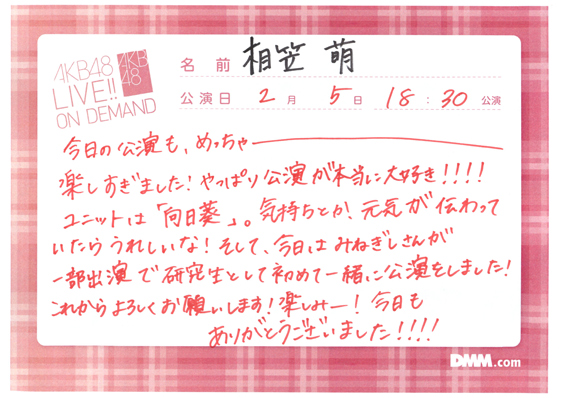 AKB48
LIVE!!
ON DEMAND
AKB
48
名 前 相笠 萌
公演日 2 月 5 日 18 : 30 公演
今日の公演も、めっちゃー
楽しすぎました！やっぱり公演が本当に大好き！！！！
ユニットは「向日葵」。気持ちとか、元気が伝わって
いたらうれしいな！そして、今日はみねぎしさんが
一部出演で研究生として初めて一緒に公演をしました！
これからよろしくお願いします！楽しみー！今日も
ありがとうございました！！！！
DMM.com